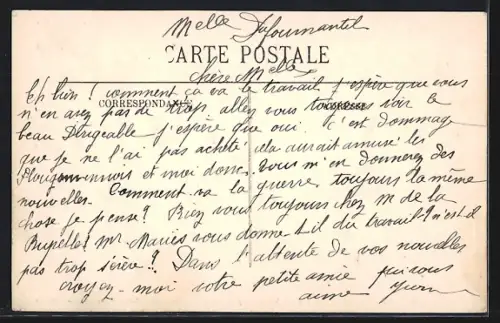 Melle Dafournantel
CARTE POSTALE
chère Melle
CORRESPONDANCE
ADRESSE
Eh bien ! comment ça va le travail j'espère que vous
n'en avez pas de trop allez vous toujours voir le
beau Dirigeable j'espère que oui. C'est dommage
que je ne l'ai pas acheté cela aurait amusé les
et moi donc. Vous m'en donnerez des
nouvelles. Comment va la guerre, toujours la même
chose je pense ? Etiez vous toujours chez M de la
? Mr vous donne t-il du travail ? n'est il
pas trop sévère ? Dans l'attente de vos nouvelles
croyez-moi votre petite amie qui vous
aime